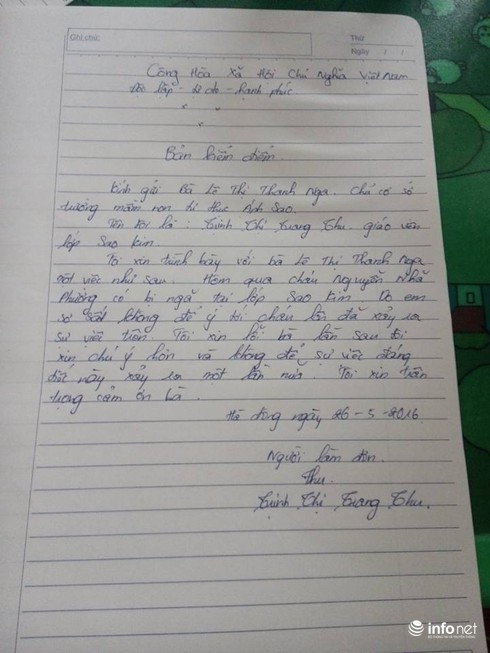 Ghi chú:
Thứ
Ngày / /
Cộng Hòa Xã Hội Chủ Nghĩa Việt Nam
Độc lập - tự do - hạnh phúc.
Bản kiểm điểm.
Kính gửi Bà Lê Thị Thanh Nga. Chủ cơ sở
trường mầm non tư thục Ánh Sao.
Tên tôi là : Trịnh Thị Trang Thu. giáo viên
lớp Sao kim.
Tôi xin trình bày với bà Lê Thị Thanh Nga
một việc như sau. Hôm qua cháu Nguyễn Nhã
Phương có bị ngã tại lớp Sao kim Do em
sơ sót không để ý tới cháu lên đã xảy ra
sự việc trên. Tôi xin lỗi bà lần sau tôi
xin chú ý hơn và không để sự việc đáng
tiếc này xảy ra một lần nữa. Tôi xin trân
trọng cảm ơn bà.
Hà đông ngày 26-5-2016.
Người làm đơn.
Thu.
Trịnh Thị Trang Thu.
infonet